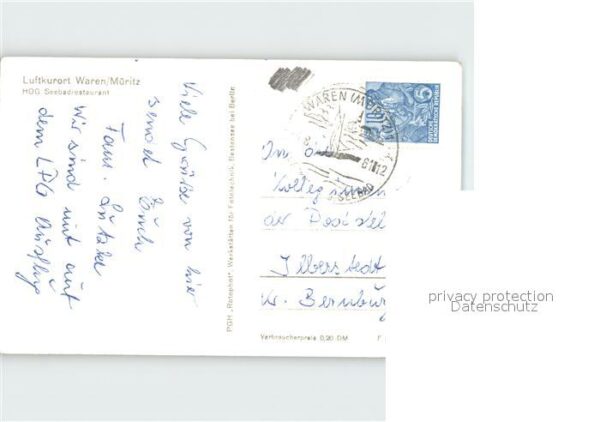 Luftkurort Waren/Müritz
HOG Seebadrestaurant
Viele Grüße von hier
sendet Euch
Fam.
Wir sind mit auf
dem LPG Ausflug
PGH „Rotophot" Werkstätten für Fototechnik, Bestensee bei Berlin
WAREN (MÜRITZ)
SEEBAD
10
DEUTSCHE
DEMOKRATISCHE REPUBLIK
An die
der Post
Ilberstedt
Kr. Bernburg
Verbraucherpreis 0,20 DM
privacy protection
Datenschutz